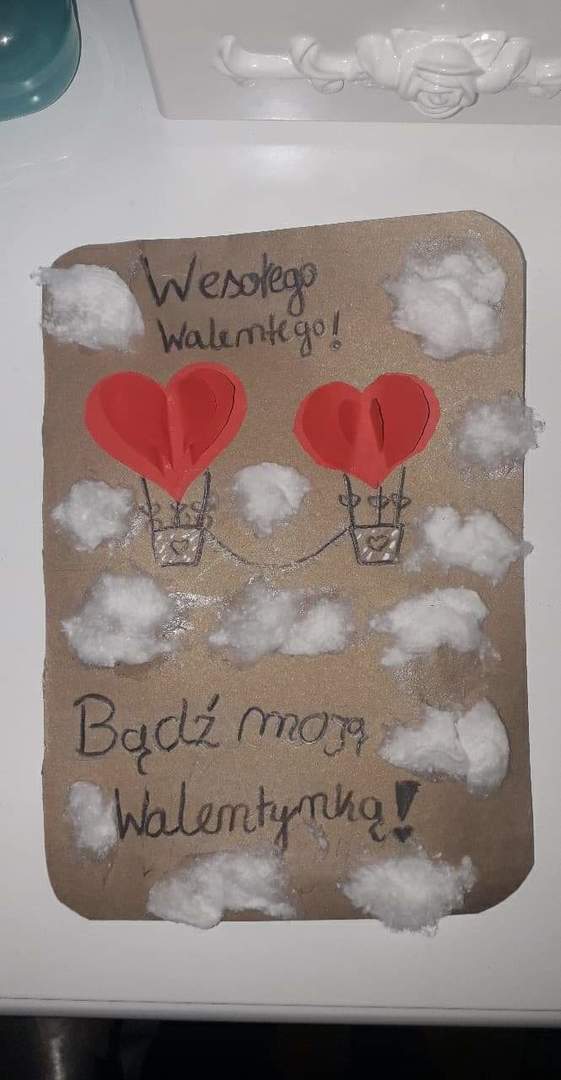 Wesołego
Walentego!
Bądź moją
Walentynką!